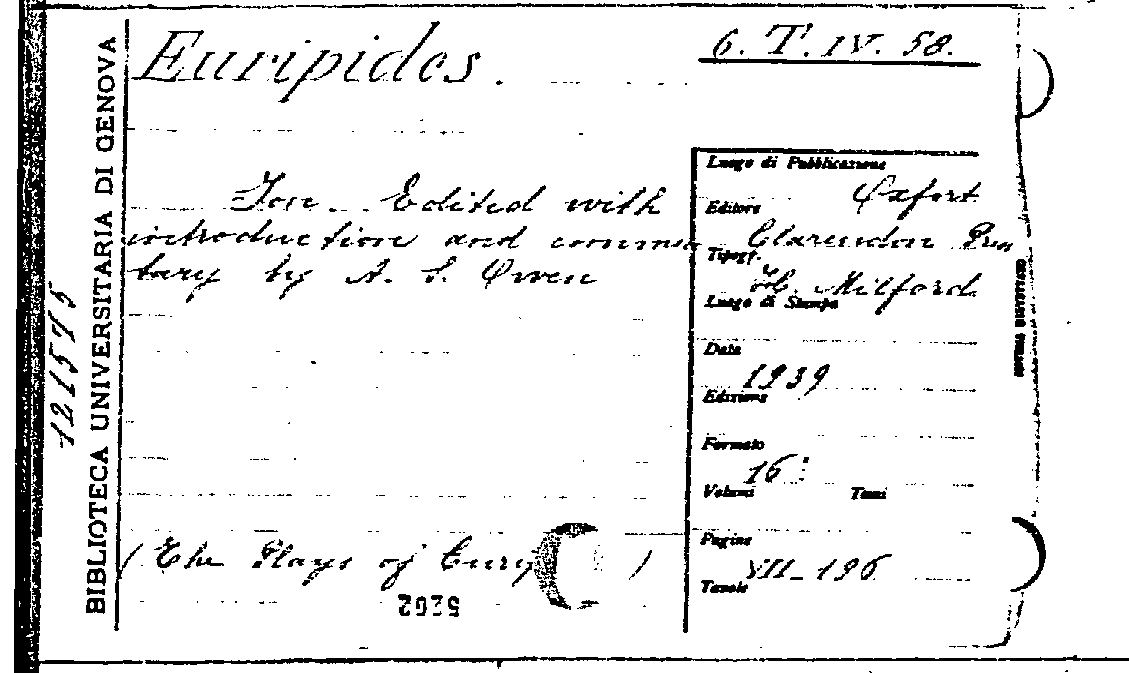 Euripides.
6. T. IV. 58.
Ion. Edited with
introduction and commen
tary by A. S. Owen
(The Plays of Eurip )
5202
BIBLIOTECA UNIVERSITARIA DI GENOVA
121575
Luogo di Pubblicazione
Oxfort
Editore
Clarendon Press
Tipogr.
H. Milford
Luogo di Stampa
Data
1939
Edizione
Formato
16°
Volumi Tomi
Pagine
VII-196
Tavole